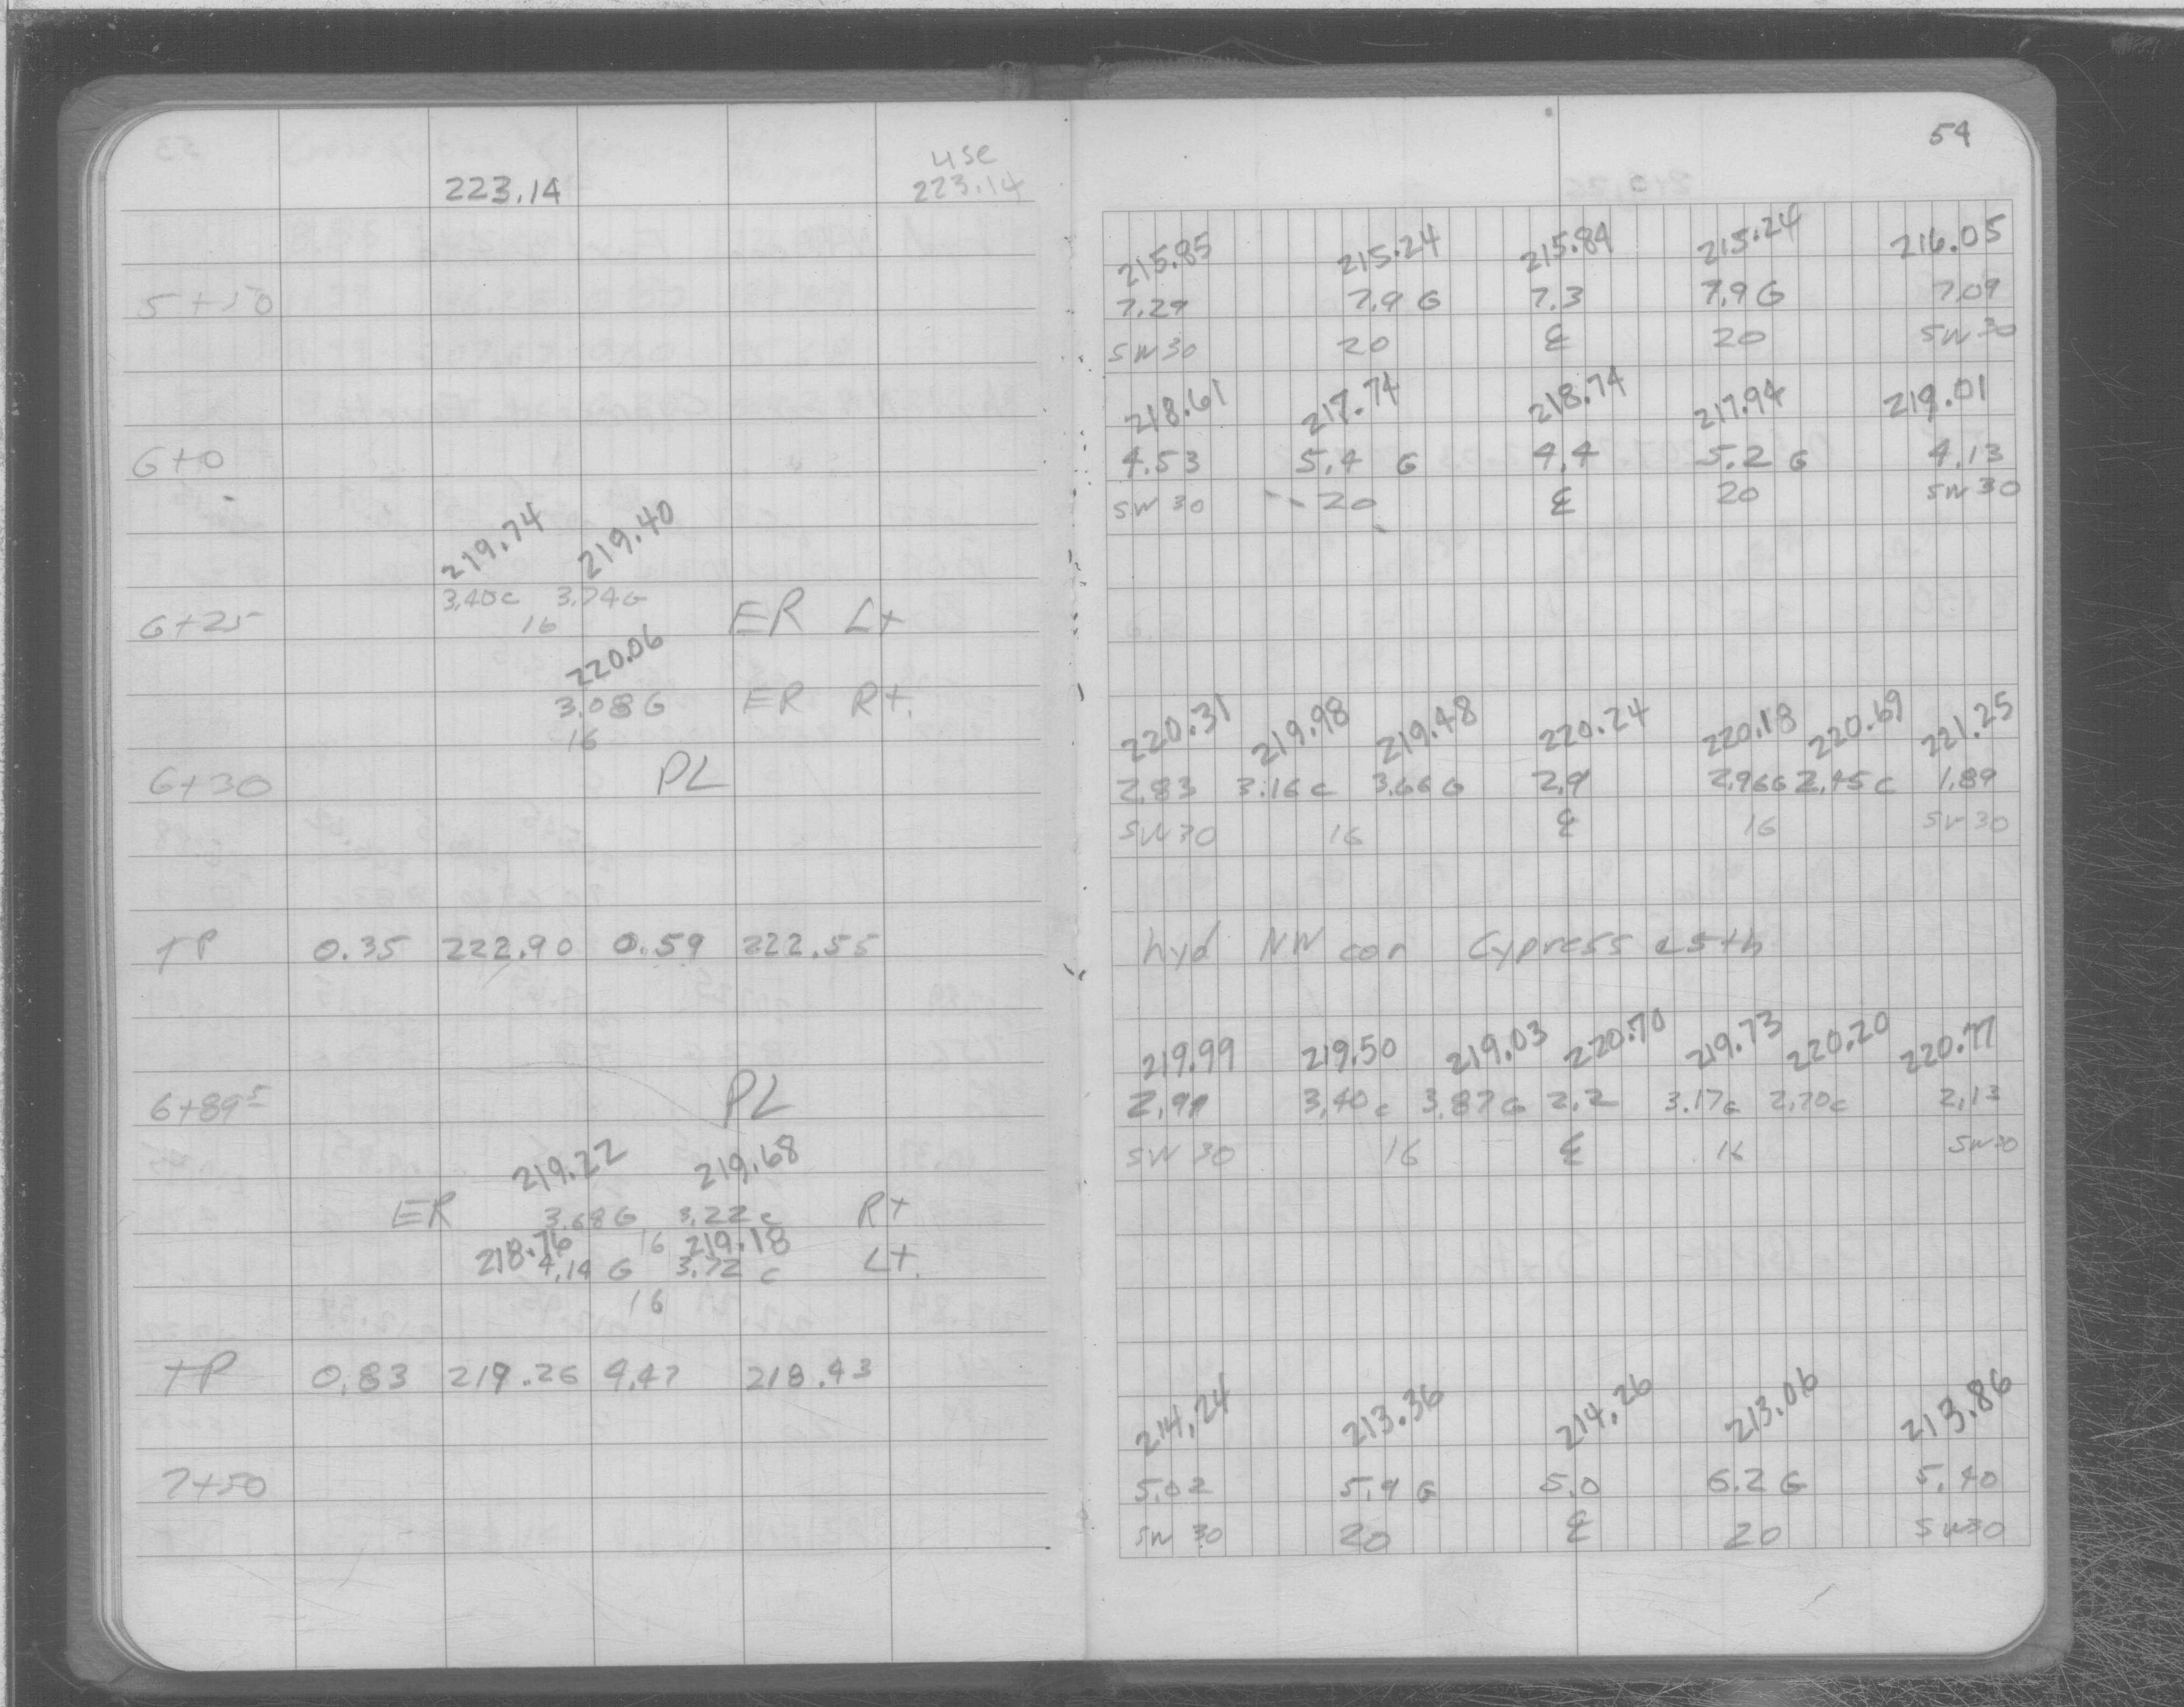 use
223.14 223.14
5+50
6+0
219.74 219.40
3.40c 3.74G
6+25 16 ER Lt
220.06
3.08G ER Rt.
16
6+30 PL
TP 0.35 222.90 0.59 222.55
6+89⁵ PL
219.22 219.68
ER 3.68G 3.22c Rt
16
218.76 219.18
4.14 G 3.72 c Lt.
16
TP 0.83 219.26 4.47 218.43
7+50
54
215.85 215.24 215.84 215.24 216.05
7.29 7.9 G 7.3 7.9 G 7.09
SW 30 20 ℄ 20 SW 30
218.61 217.74 218.74 217.94 219.01
4.53 5.4 G 4.4 5.2 G 4.13
SW 30 20 ℄ 20 SW 30
220.31 219.98 219.48 220.24 220.18 220.69 221.25
2.83 3.16 c 3.66 G 2.9 2.96G 2.45 c 1.89
SW 30 16 ℄ 16 SW 30
hyd NW cor Cypress 25th
219.99 219.50 219.03 220.70 219.73 220.20 220.77
2.91 3.40 c 3.87 G 2.2 3.17G 2.70c 2.13
SW 30 16 ℄ 16 SW 30
214.24 213.36 214.26 213.06 213.86
5.02 5.9 G 5.0 6.2 G 5.40
SW 30 20 ℄ 20 SW 30